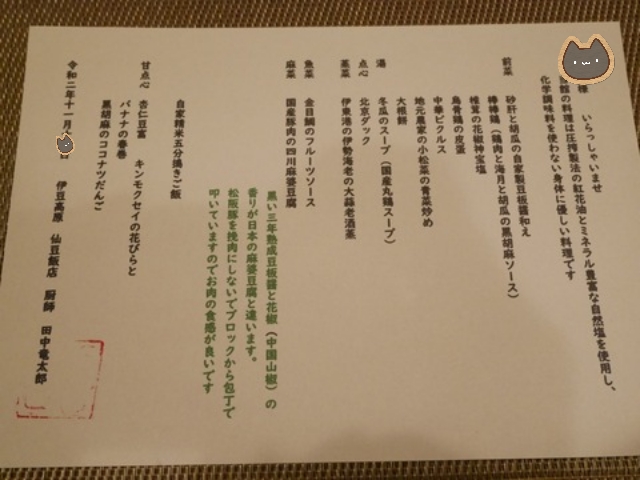 様 いらっしゃいませ
館の料理は圧搾製法の紅花油とミネラル豊富な自然塩を使用し、
化学調味料を使わない身体に優しい料理です
前菜 砂肝と胡瓜の自家製豆板醤和え
棒棒鶏(鶏肉と海月と胡瓜の黒胡麻ソース)
椎茸の花椒神宝塩
烏骨鶏の皮蛋
中華ピクルス
地元農家の小松菜の青菜炒め
大根餅
湯 冬瓜のスープ(国産丸鶏スープ)
点心 北京ダック
蒸菜 伊東港の伊勢海老の大蒜老酒蒸
魚菜 金目鯛のフルーツソース
麻菜 国産豚肉の四川麻婆豆腐
黒い三年熟成豆板醤と花椒(中国山椒)の
香りが日本の麻婆豆腐と違います。
松阪豚を挽肉にしないでブロックから包丁で
叩いていますのでお肉の食感が良いです
自家精米五分搗きご飯
甘点心 杏仁豆腐 キンモクセイの花びらと
バナナの春巻
黒胡麻のココナツだんご
令和二年十一月 伊豆高原 仙豆飯店 厨師 田中竜太郎